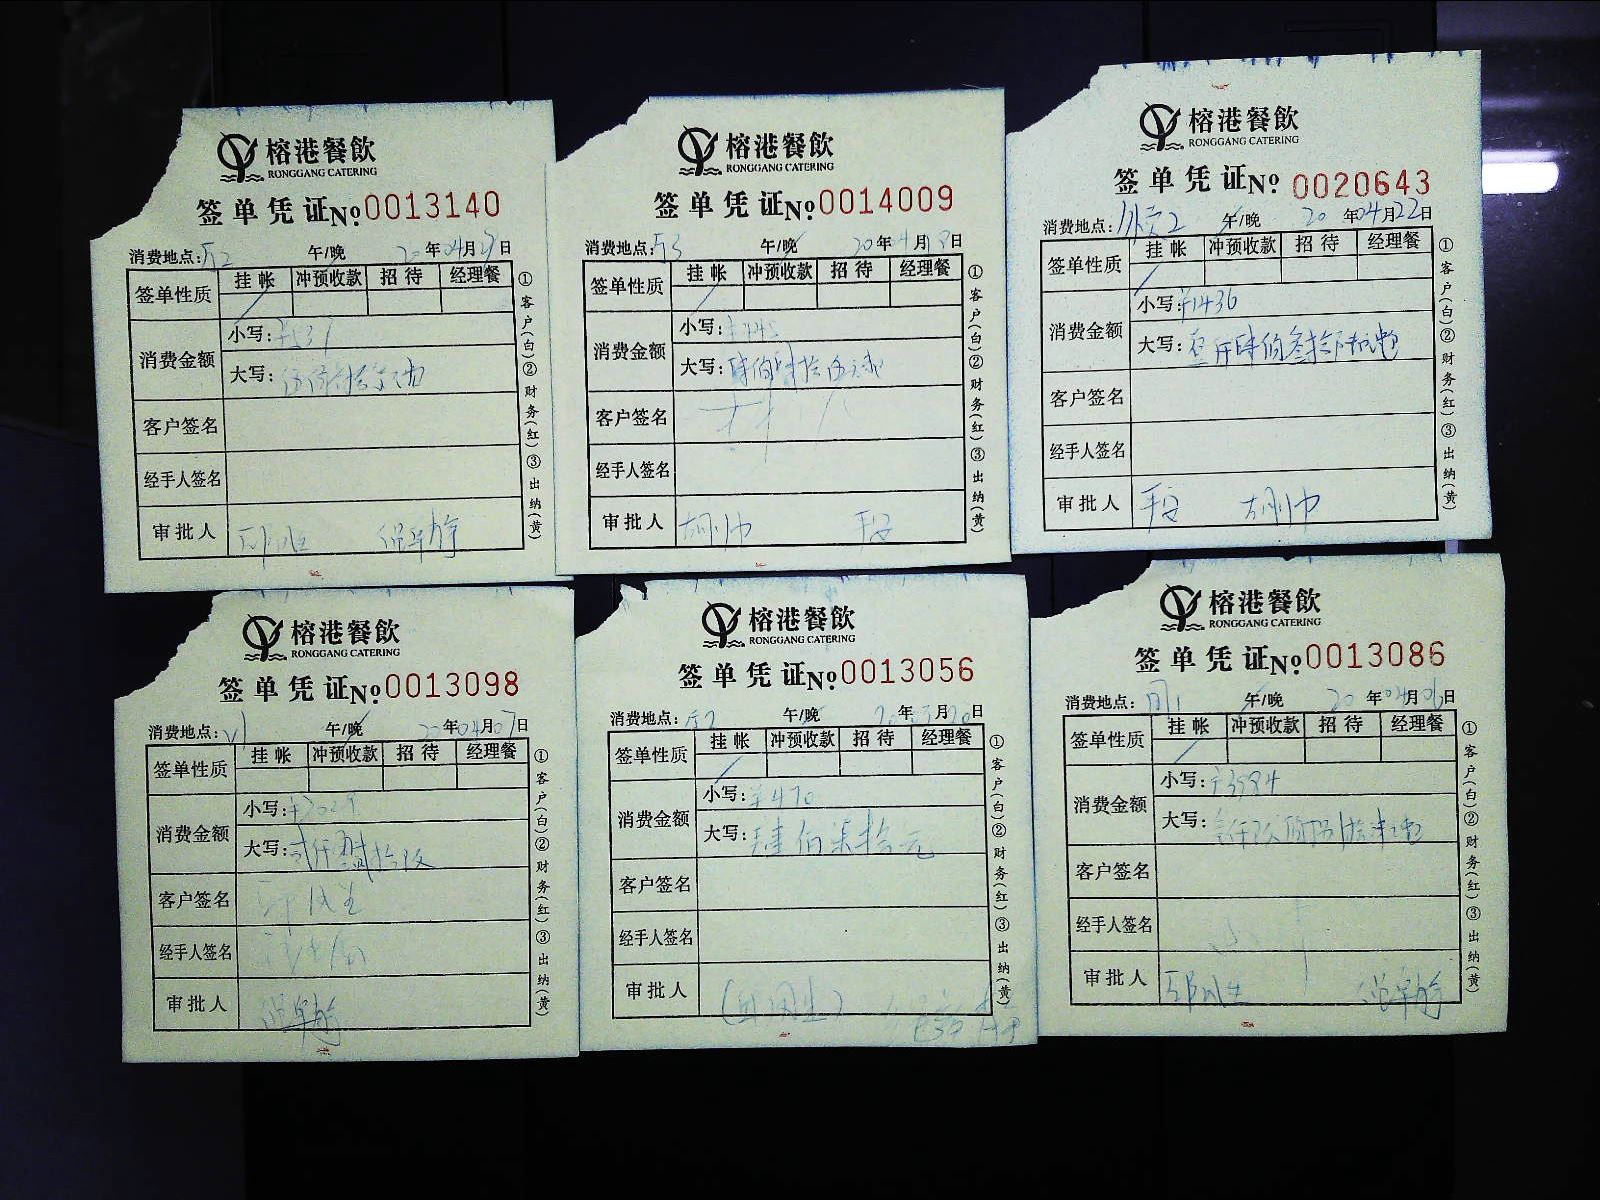 榕港餐飲
RONGGANG CATERING
签单凭证 No 0013140
消费地点: 午/晚 20年04月 日
签单性质 挂帐 冲预收款 招待 经理餐
消费金额
小写:
大写:
客户签名
经手人签名
审批人
①客户(白)②财务(红)③出纳(黄)
榕港餐飲
RONGGANG CATERING
签单凭证 No 0014009
消费地点: 午/晚 20年4月 日
签单性质 挂帐 冲预收款 招待 经理餐
消费金额
小写:¥445
大写:肆佰肆拾伍元
客户签名
经手人签名
审批人
①客户(白)②财务(红)③出纳(黄)
榕港餐飲
RONGGANG CATERING
签单凭证 No 0020643
消费地点: 2 午/晚 20年04月22日
签单性质 挂帐 冲预收款 招待 经理餐
消费金额
小写:¥1436
大写:壹仟肆佰叁拾陆元
客户签名
经手人签名
审批人
①客户(白)②财务(红)③出纳(黄)
榕港餐飲
RONGGANG CATERING
签单凭证 No 0013098
消费地点: 午/晚 20年04月07日
签单性质 挂帐 冲预收款 招待 经理餐
消费金额
小写:
大写:
客户签名
经手人签名
审批人
①客户(白)②财务(红)③出纳(黄)
榕港餐飲
RONGGANG CATERING
签单凭证 No 0013056
消费地点: 午/晚 20年3月20日
签单性质 挂帐 冲预收款 招待 经理餐
消费金额
小写:¥470
大写:肆佰柒拾元
客户签名
经手人签名
审批人
①客户(白)②财务(红)③出纳(黄)
榕港餐飲
RONGGANG CATERING
签单凭证 No 0013086
消费地点: 午/晚 20年04月06日
签单性质 挂帐 冲预收款 招待 经理餐
消费金额
小写:
大写:
客户签名
经手人签名
审批人
①客户(白)②财务(红)③出纳(黄)